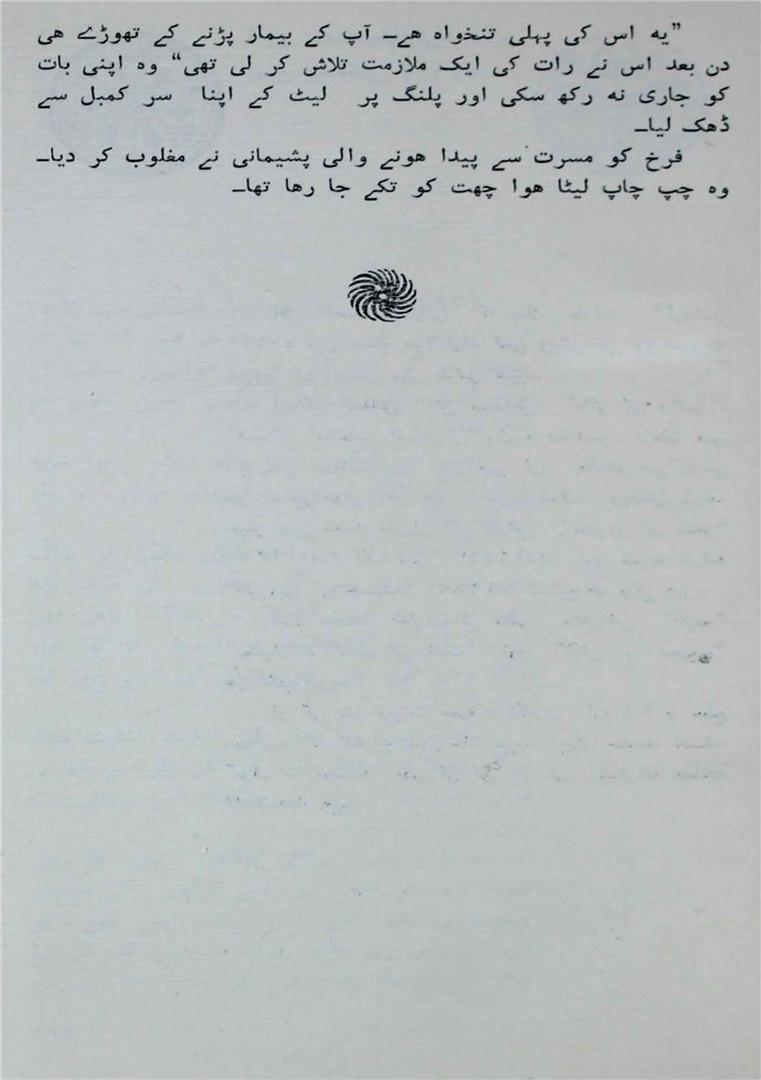 ”یه اس کی پہلی تنخواہ ھے۔ آپ کے بیمار پڑنے کے تھوڑے ھی
دن بعد اس نے رات کی ایک ملازمت تلاش کر لی تھی“ وہ اپنی بات
کو جاری نه رکھ سکی اور پلنگ پر لیٹ کے اپنا سر کمبل سے
ڈھک لیا۔
فرخ کو مسرت سے پیدا ھونے والی پشیمانی نے مغلوب کر دیا۔
وہ چپ چاپ لیٹا ھوا چھت کو تکے جا رھا تھا۔